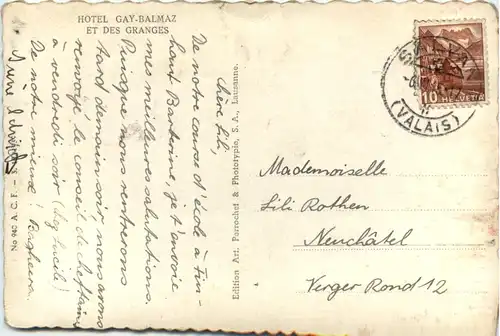 HOTEL GAY-BALMAZ
ET DES GRANGES
Chère Lili,
De notre course d'école à Fin-
haut Barberine, je t'envoie
mes meilleures salutations.
Puisque nous rentrerons
tard demain soir, nous avons
renvoyé le conseil de
à vendredi soir (
De notre mieux! Bagheera.
No 940 A. C. F.
Edition Art. Perrochet & Phototypie, S. A., Lausanne.
(VALAIS)
10 HELVETIA
Mademoiselle
Lili Rothen
Neuchâtel
Verger Rond 12